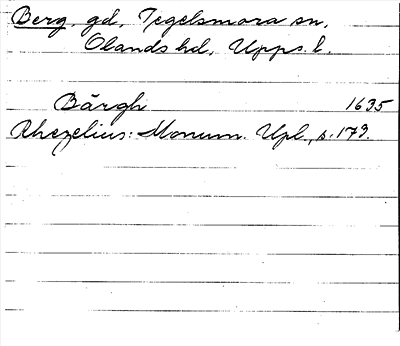 Berg, gd, Tegelsmora sn,
Olands hd, Upps. l.
Bärgh 1635
Rhezelius: Monum. Upl., s. 179.